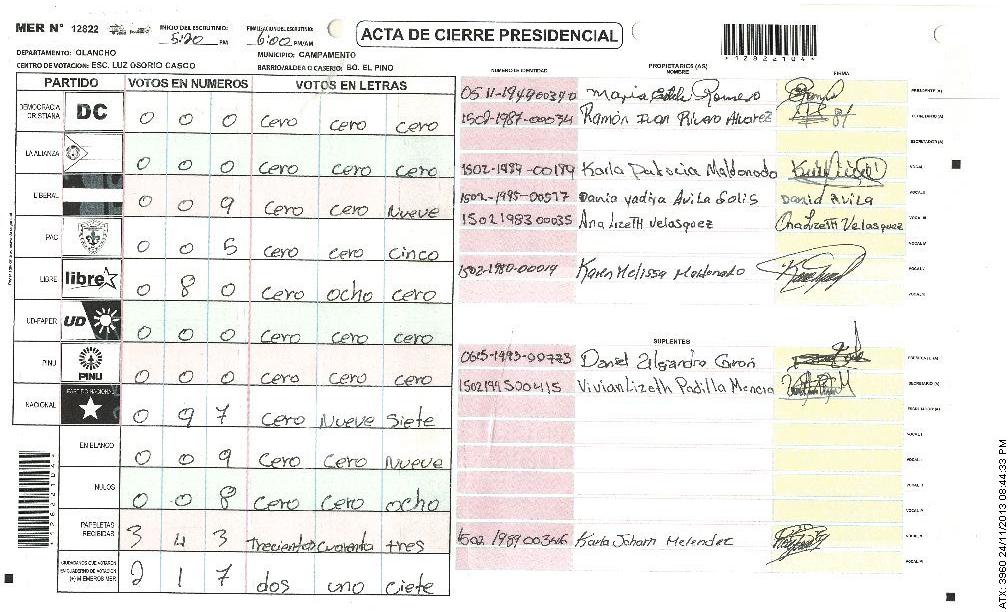 MER N° 12822
INICIO DEL ESCRUTINIO:
5:20 PM
FINALIZACION DEL ESCRUTINIO:
6:00 PM/AM
ACTA DE CIERRE PRESIDENCIAL
*12822104*
DEPARTAMENTO: OLANCHO
MUNICIPIO: CAMPAMENTO
CENTRO DE VOTACION: ESC. LUZ OSORIO CASCO
BARRIO/ALDEA O CASERIO: BO. EL PINO
PARTIDO VOTOS EN NUMEROS VOTOS EN LETRAS
DEMOCRACIA CRISTIANA DC 0 0 0 cero cero cero
LA ALIANZA 0 0 0 cero cero cero
LIBERAL 0 0 9 cero cero nueve
PAC 0 0 5 cero cero cinco
LIBRE libre 0 8 0 cero ocho cero
UD-FAPER UD 0 0 0 cero cero cero
PINU PINU 0 0 0 cero cero cero
NACIONAL PARTIDO NACIONAL 0 9 7 cero nueve siete
EN BLANCO 0 0 9 cero cero nueve
NULOS 0 0 8 cero cero ocho
PAPELETAS RECIBIDAS 3 4 3 Trecientos cuarenta tres
CIUDADANOS QUE VOTARON EN CUADERNO DE VOTACION (+) MIEMBROS MER 2 1 7 dos uno ciete
NUMERO DE IDENTIDAD PROPIETARIOS (AS) NOMBRE FIRMA
0511-1949-00340 Maria Romero PRESIDENTE (A)
1502-1987-00034 Ramón Ivan Rivera Alvarez SECRETARIO (A)
ESCRUTADOR (A)
1502-1989-00189 Karla Patricia Maldonado VOCAL I
1502-1995-00517 Dania Yadira Avila Solis Dania Avila VOCAL II
1502198300035 Ana Lizeth Velasquez Ana Lizeth Velasquez VOCAL III
VOCAL IV
1502-1980-00019 Karen Melissa Maldonado VOCAL V
VOCAL VI
SUPLENTES
0615-1993-00773 Daniel Alejandro PRESIDENTE (A)
1502199500415 Vivian Lizeth Padilla SECRETARIO (A)
ESCRUTADOR (A)
VOCAL I
VOCAL II
VOCAL III
VOCAL IV
1502 1989 00346 Karla Joham Melendez VOCAL V
VOCAL VI
ATX: 3960 24/11/2013 08:44:33 PM